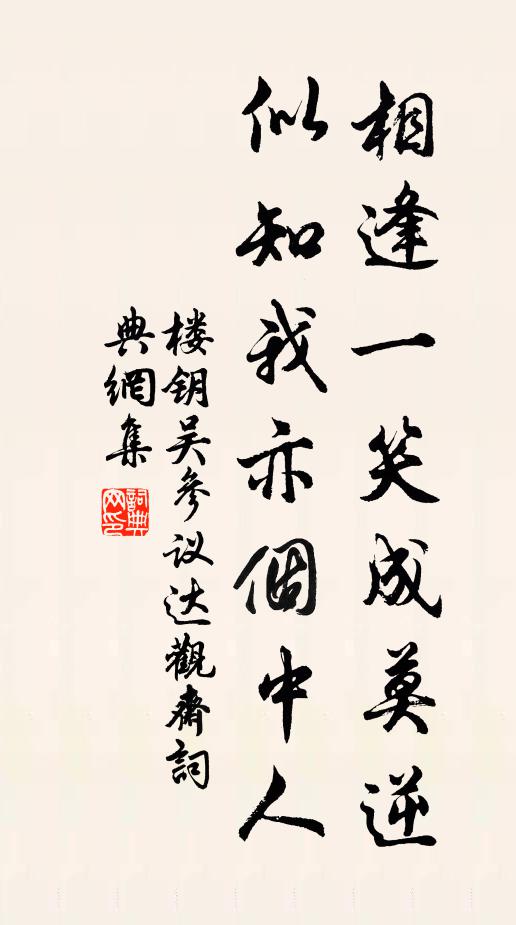 相逢一笑成莫逆
似知我亦個中人
楼钥吴參议达觀齋詞
典網集
詞典网印